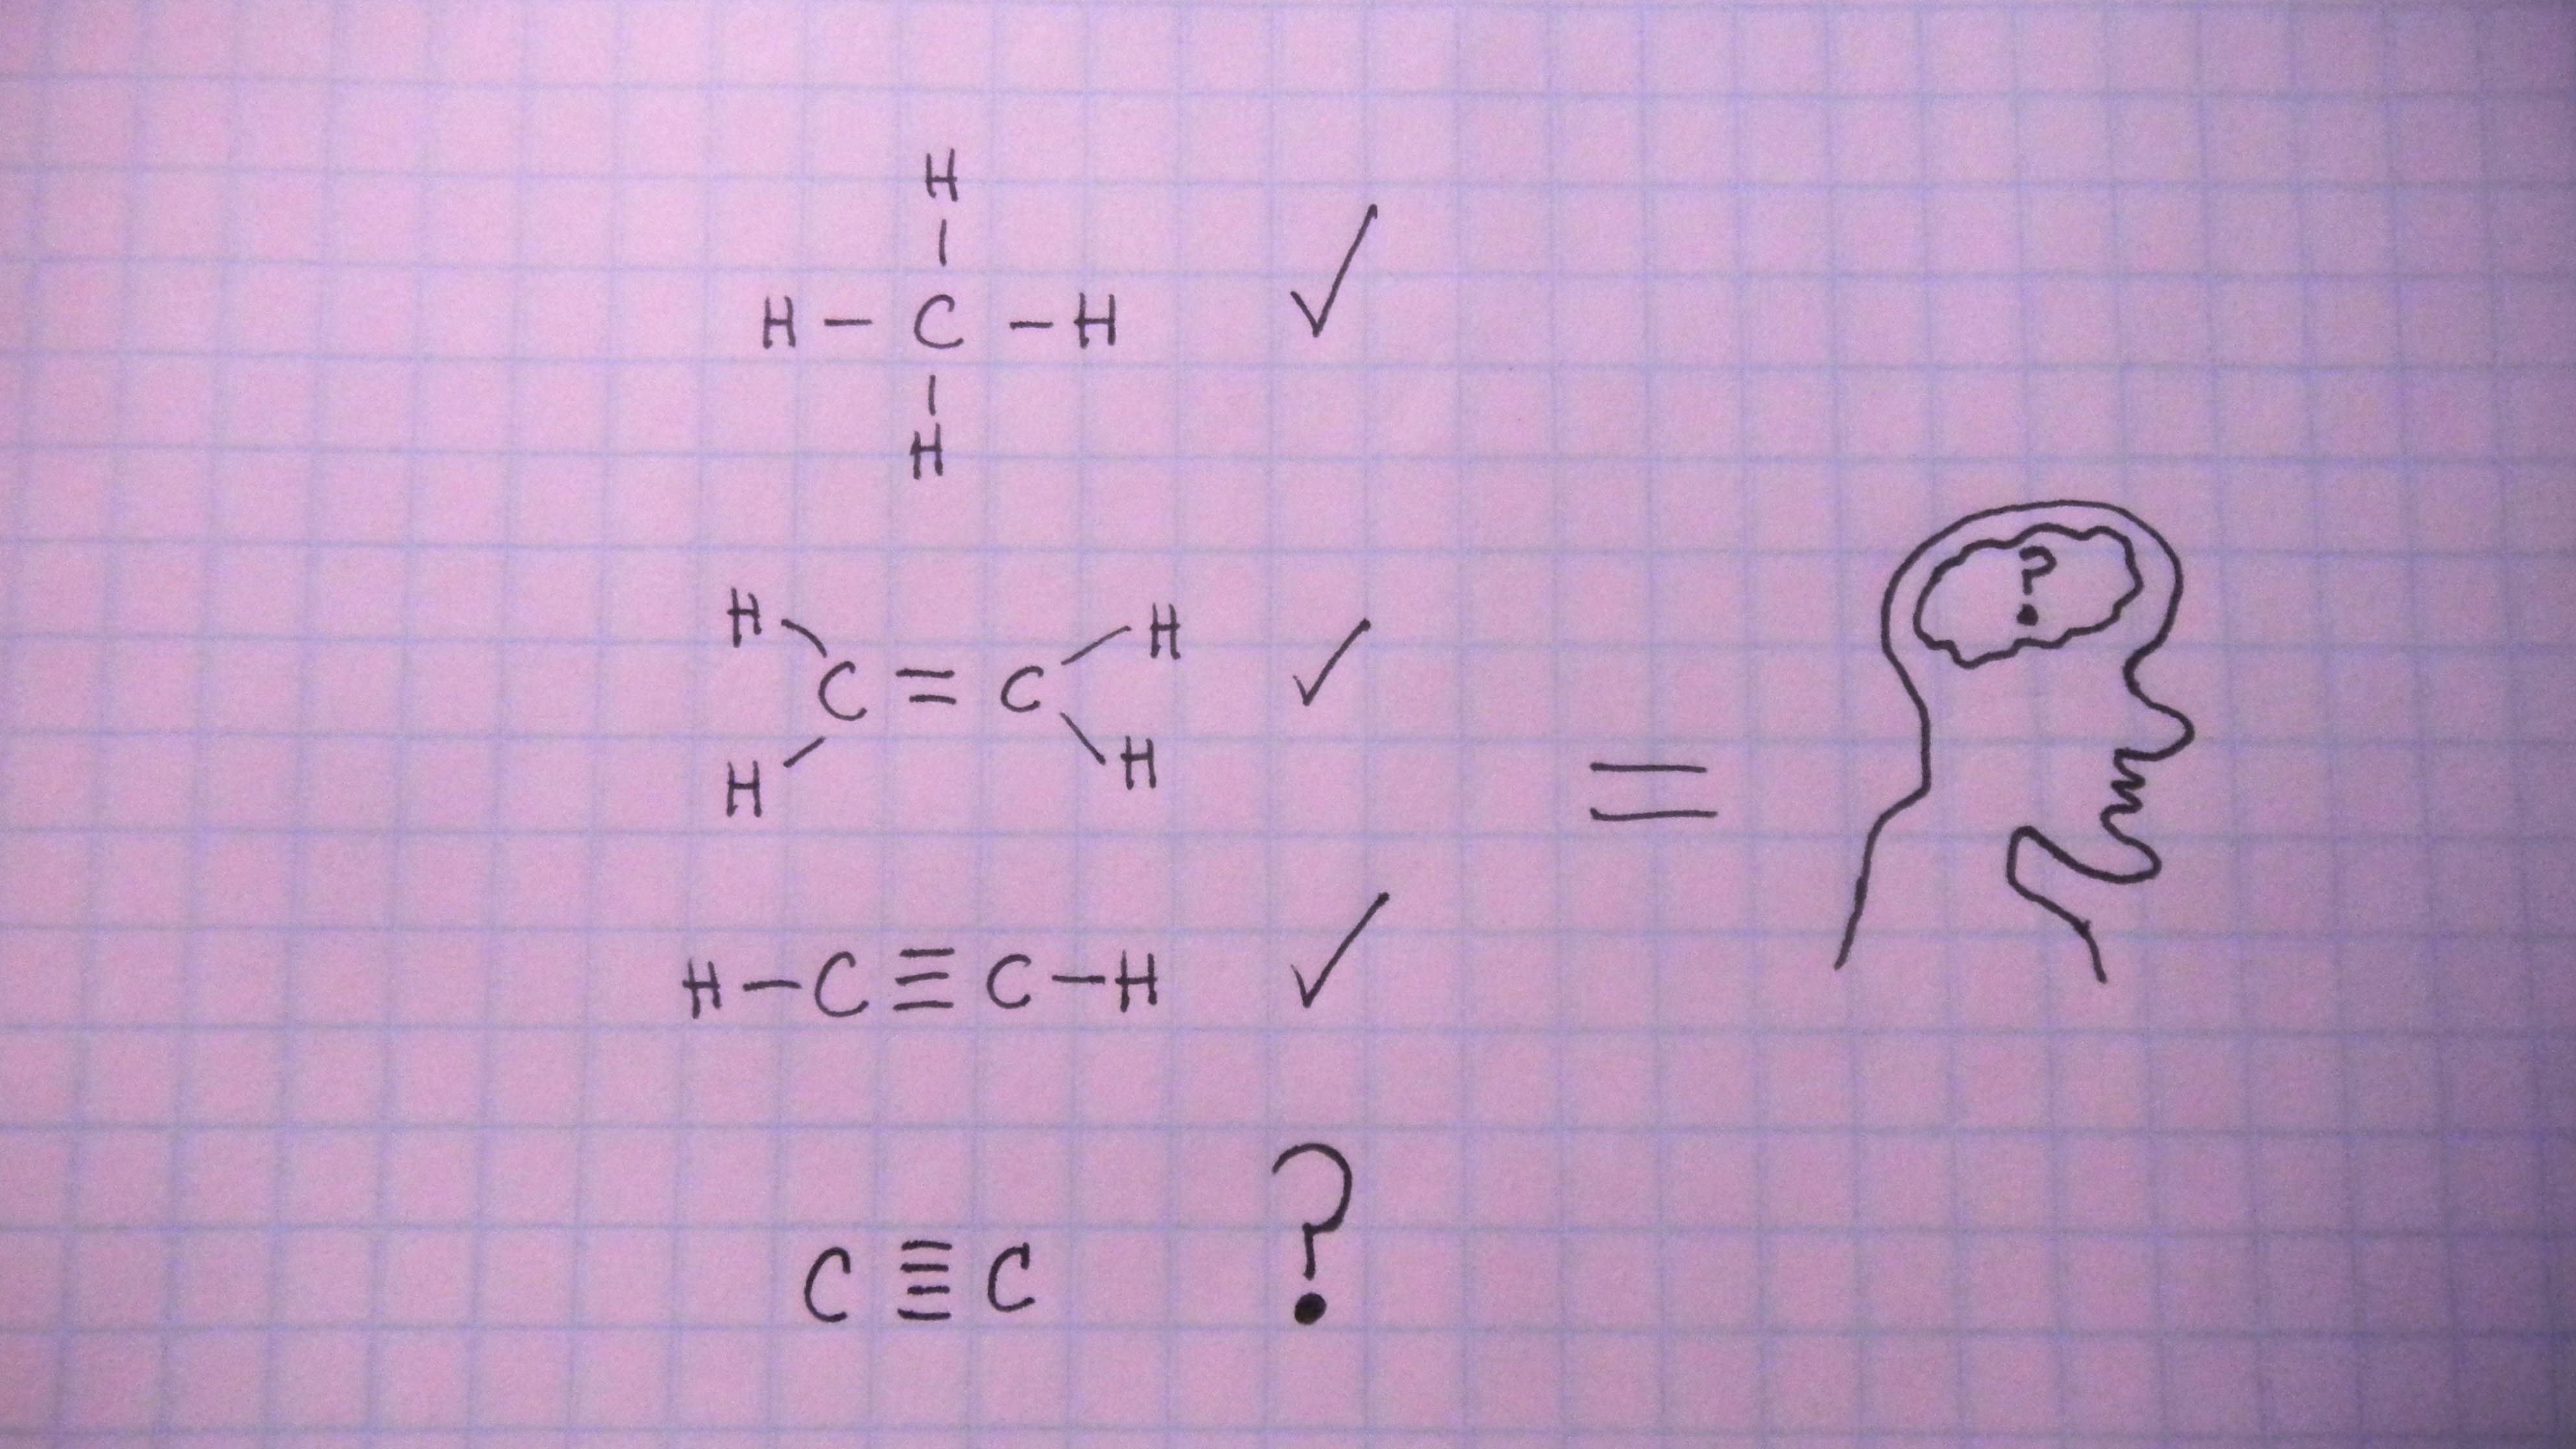 H
|
H – C – H ✓
|
H
H H
C = C ✓
H H
=
?
H – C ≡ C – H ✓
C ≣ C ?